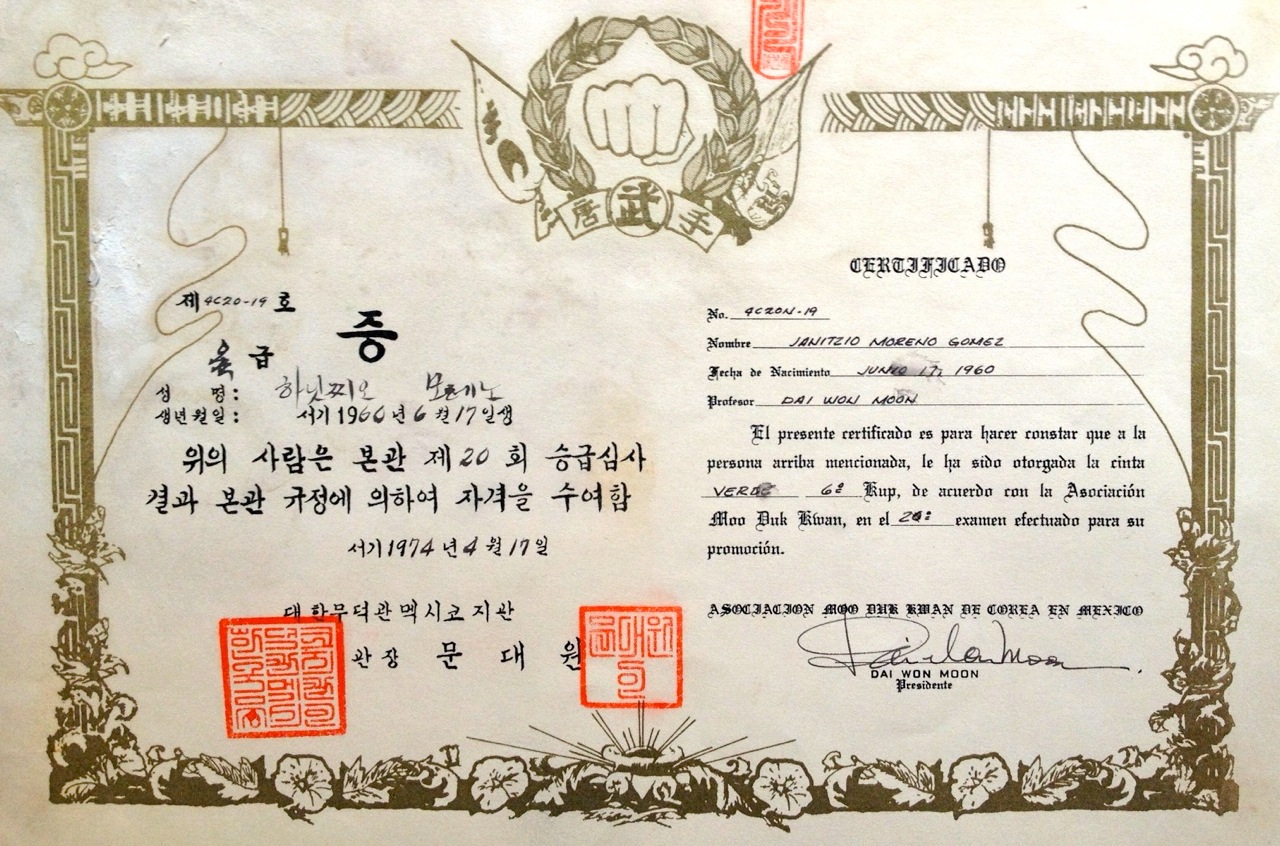 唐 武 手
제 4C20-19 호
증
육 급
성 명: 하닛찌오 모레노
생년월일: 서기 1960년 6월 17일생
위의 사람은 본관 제 20 회 승급심사
결과 본관 규정에 의하여 자격을 수여함
서기 1974년 4월 17일
대한무덕관멕시코지관
관장 문 대 원
CERTIFICADO
No. 4C20N-19
Nombre JANITZIO MORENO GOMEZ
Fecha de Nacimiento JUNIO 17, 1960
Profesor DAI WON MOON
El presente certificado es para hacer constar que a la
persona arriba mencionada, le ha sido otorgada la cinta
VERDE 6º Kup, de acuerdo con la Asociación
Moo Duk Kwan, en el 20º examen efectuado para su
promoción.
ASOCIACION MOO DUK KWAN DE COREA EN MEXICO
Dai Won Moon
DAI WON MOON
Presidente